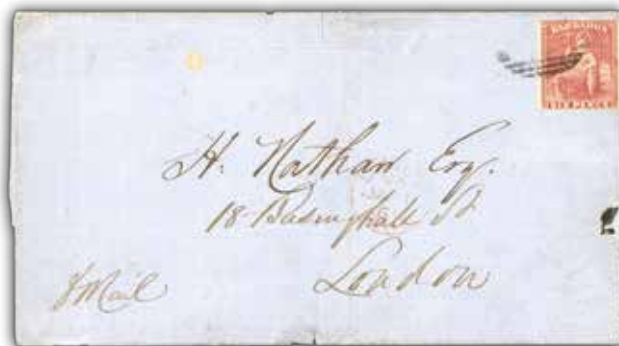 BARBADOS
SIX PENCE
H. Nathan Esq.
18 Basinghall St
London
p Mail